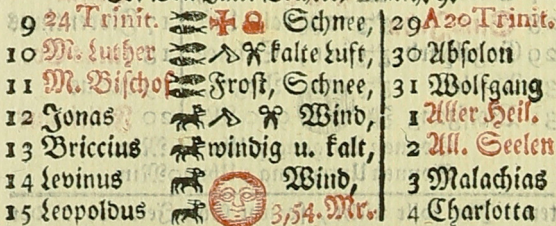 9 24 Trinit. Schnee, 29 A 20 Trinit.
10 M. Luther kalte Luft, 30 Absolon
11 M. Bischof Frost, Schnee, 31 Wolfgang
12 Jonas Wind, 1 Aller Heil.
13 Briccius windig u. kalt, 2 All. Seelen
14 Levinus Wind, 3 Malachias
15 Leopoldus 3,54. Mr. 4 Charlotta